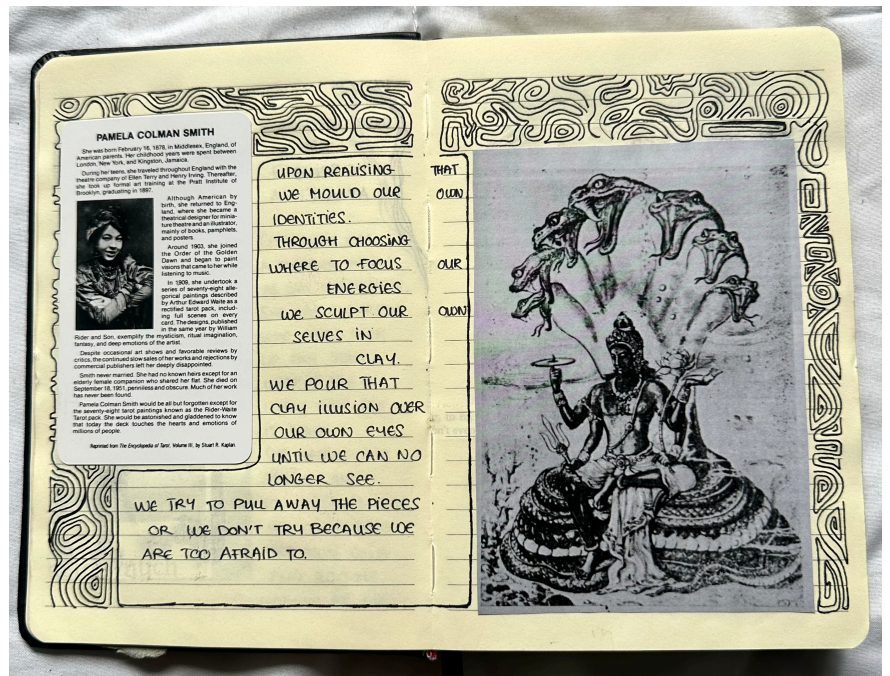 PAMELA COLMAN SMITH
She was born February 16, 1878, in Middlesex, England, of
American parents. Her childhood years were spent between
London, New York, and Kingston, Jamaica.
During her teens, she traveled throughout England with the
theatre company of Ellen Terry and Henry Irving. Thereafter,
she took up formal art training at the Pratt Institute of
Brooklyn, graduating in 1897.
Although American by
birth, she returned to Eng-
land, where she became a
theatrical designer for minia-
ture theatre and an illustrator,
mainly of books, pamphlets,
and posters.
Around 1903, she joined
the Order of the Golden
Dawn and began to paint
visions that came to her while
listening to music.
In 1909, she undertook a
series of seventy-eight alle-
gorical paintings described
by Arthur Edward Waite as a
rectified tarot pack, includ-
ing full scenes on every
card. The designs, published
in the same year by William
Rider and Son, exemplify the mysticism, ritual imagination,
fantasy, and deep emotions of the artist.
Despite occasional art shows and favorable reviews by
critics, the continued slow sales of her works and rejections by
commercial publishers left her deeply disappointed.
Smith never married. She had no known heirs except for an
elderly female companion who shared her flat. She died on
September 18, 1951, penniless and obscure. Much of her work
has never been found.
Pamela Colman Smith would be all but forgotten except for
the seventy-eight tarot paintings known as the Rider-Waite
Tarot pack. She would be astonished and gladdened to know
that today the deck touches the hearts and emotions of
millions of people.
Reprinted from The Encyclopedia of Tarot, Volume III, by Stuart R. Kaplan.
UPON REALISING THAT
WE MOULD OUR OWN
IDENTITIES.
THROUGH CHOOSING
WHERE TO FOCUS OUR
ENERGIES
WE SCULPT OUR OWN
SELVES IN
CLAY.
WE POUR THAT
CLAY ILLUSION OVER
OUR OWN EYES
UNTIL WE CAN NO
LONGER SEE.
WE TRY TO PULL AWAY THE PIECES
OR WE DON'T TRY BECAUSE WE
ARE TOO AFRAID TO.